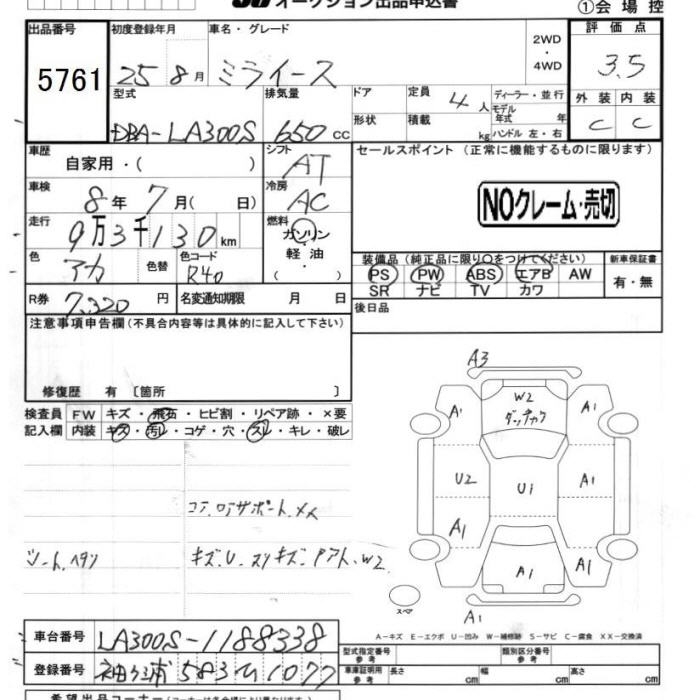 オークション出品申込書
①会場控
出品番号
5761
初度登録年月
25 8月
車名・グレード
ミライース
2WD
・
4WD
評価点
3.5
型式
DBA-LA300S
排気量
650 CC
ドア
形状
定員 4人
積載 kg
ディーラー・並行
モデル
年式 年
ハンドル 左・右
外装 内装
C C
車歴
自家用・( )
シフト
AT
セールスポイント (正常に機能するものに限ります)
NOクレーム・売切
車検
8年 7月( 日)
冷房
AC
走行
9万3千130km
燃料
ガソリン
軽油
・( )
色
アカ
色替
色コード
R40
装備品 (純正品に限り○をつけてください)
PS PW ABS エアB AW
SR ナビ TV カワ
新車保証書
有・無
R券
7,320円
名変通知期限 月 日
後日品
注意事項申告欄 (不具合内容等は具体的に記入して下さい)
修復歴 有〔箇所 〕
検査員
記入欄
FW キズ・飛石・ヒビ割・リペア跡・×要
内装 キズ・汚レ・コゲ・穴・スレ・キレ・破レ
A3
A1
W2
A1
U2
U1
A1
A1
A1
A1
A1
スペア
A-キズ E-エクボ U-凹み W-補修跡 S-サビ C-腐食 XX-交換済
車台番号
LA300S-1188338
登録番号
袖ヶ浦 583 1077
型式指定番号
参考
類別区分番号
参考
車庫証明用
参考
長さ cm
幅 cm
高さ cm
希望出品コーナー